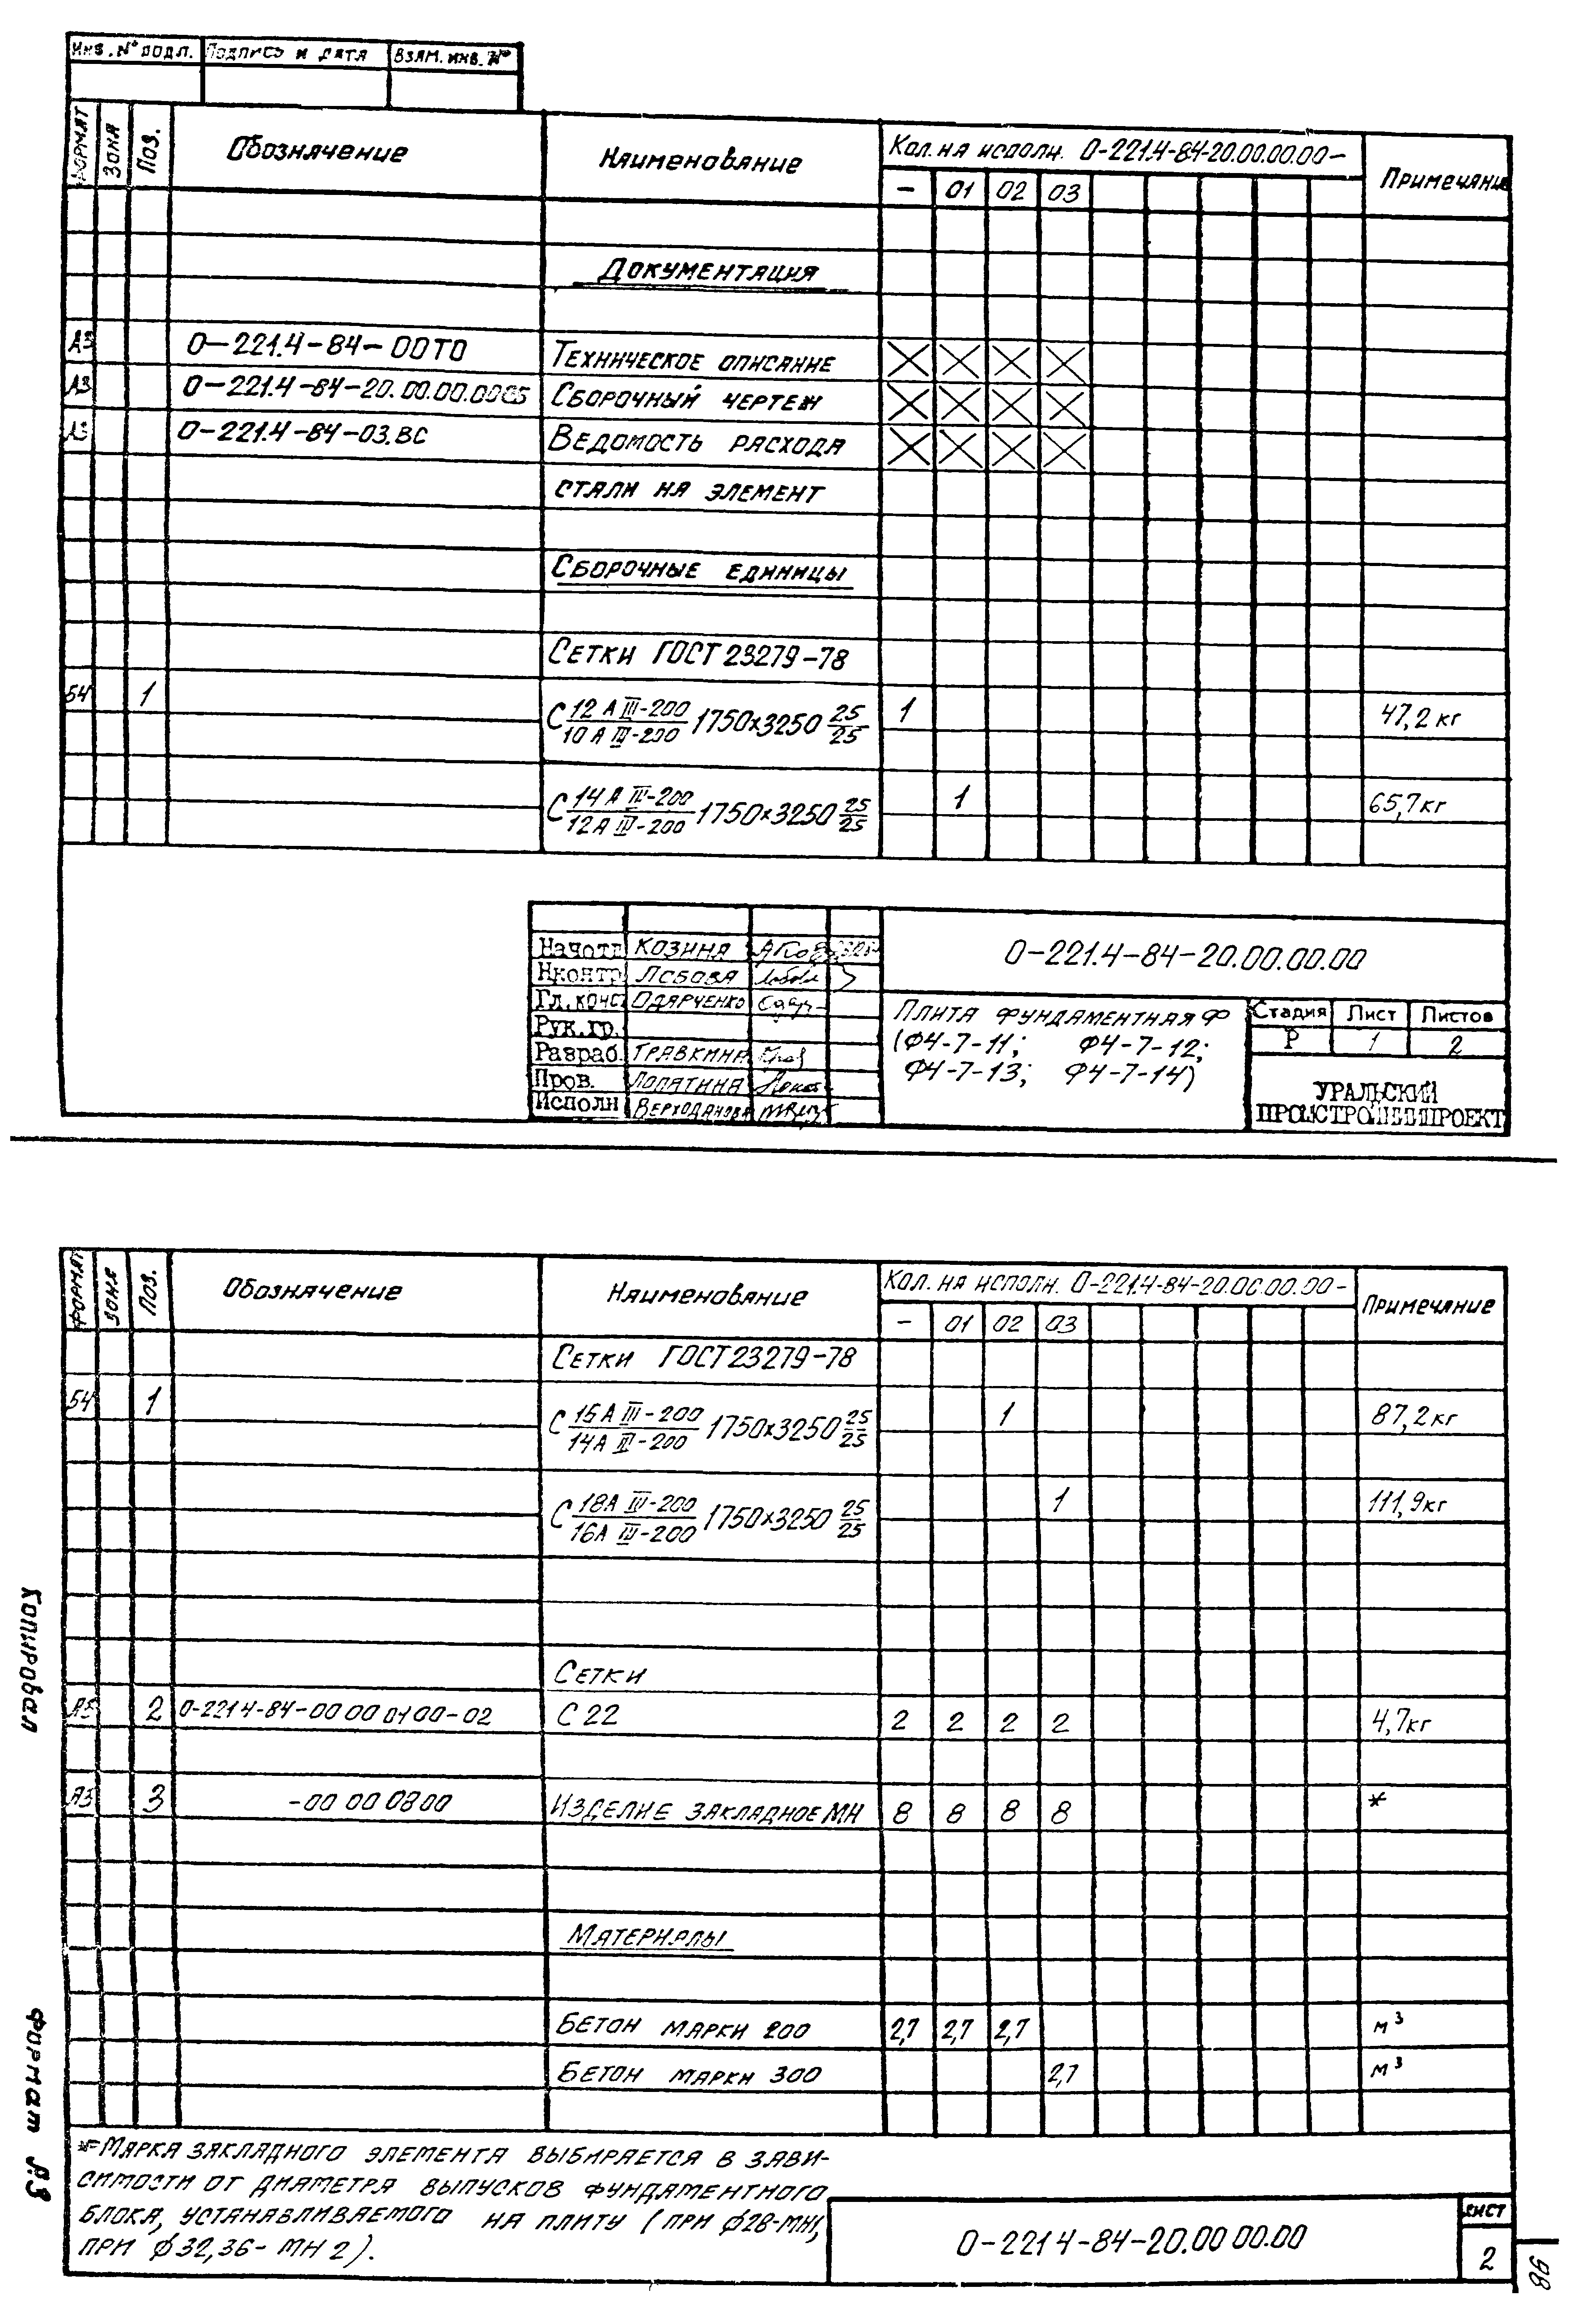 Инв. № подл. Подпись и дата Взам. инв. №
Формат Зона Поз. Обозначение Наименование Кол. на исполн. 0-221.4-84-20.00.00.00- Примечание
- 01 02 03
Документация
А3 0-221.4-84-00ТО Техническое описание
А3 0-221.4-84-20.00.00.00СБ Сборочный чертеж
А3 0-221.4-84-03.ВС Ведомость расхода
стали на элемент
Сборочные единицы
Сетки ГОСТ 23279-78
БЧ 1 С 12 А III-200 / 10 А III-200 1750х3250 25/25 1 47,2 кг
С 14 А III-200 / 12 А III-200 1750х3250 25/25 1 65,7 кг
Нач.отд Козина
Н.контр Лобова
Гл.конс Одярченко
Рук.гр.
Разраб. Травкина
Пров. Лопатина
Исполн Верходанова
0-221.4-84-20.00.00.00
Плита фундаментная Ф
(Ф4-7-11; Ф4-7-12;
Ф4-7-13; Ф4-7-14)
Стадия Лист Листов
Р 1 2
УРАЛЬСКИЙ
ПРОМСТРОЙНИИПРОЕКТ
Формат Зона Поз. Обозначение Наименование Кол. на исполн. 0-221.4-84-20.00.00.00- Примечание
- 01 02 03
Сетки ГОСТ 23279-78
БЧ 1 С 16 А III-200 / 14 А III-200 1750х3250 25/25 1 87,2 кг
С 18 А III-200 / 16 А III-200 1750х3250 25/25 1 111,9 кг
Сетки
А3 2 0-221 4-84-00 00 01 00-02 С 22 2 2 2 2 4,7 кг
А3 3 -00 00 08 00 Изделие закладное МН 8 8 8 8 *
Материалы
Бетон марки 200 2,7 2,7 2,7 м³
Бетон марки 300 2,7 м³
*-Марка закладного элемента выбирается в зави-
симости от диаметра выпусков фундаментного
блока, устанавливаемого на плиту (при ф28-МН1,
при ф32,36-МН2).
0-221 4-84-20.00 00.00
Лист
2
Копировал
Формат А3
98